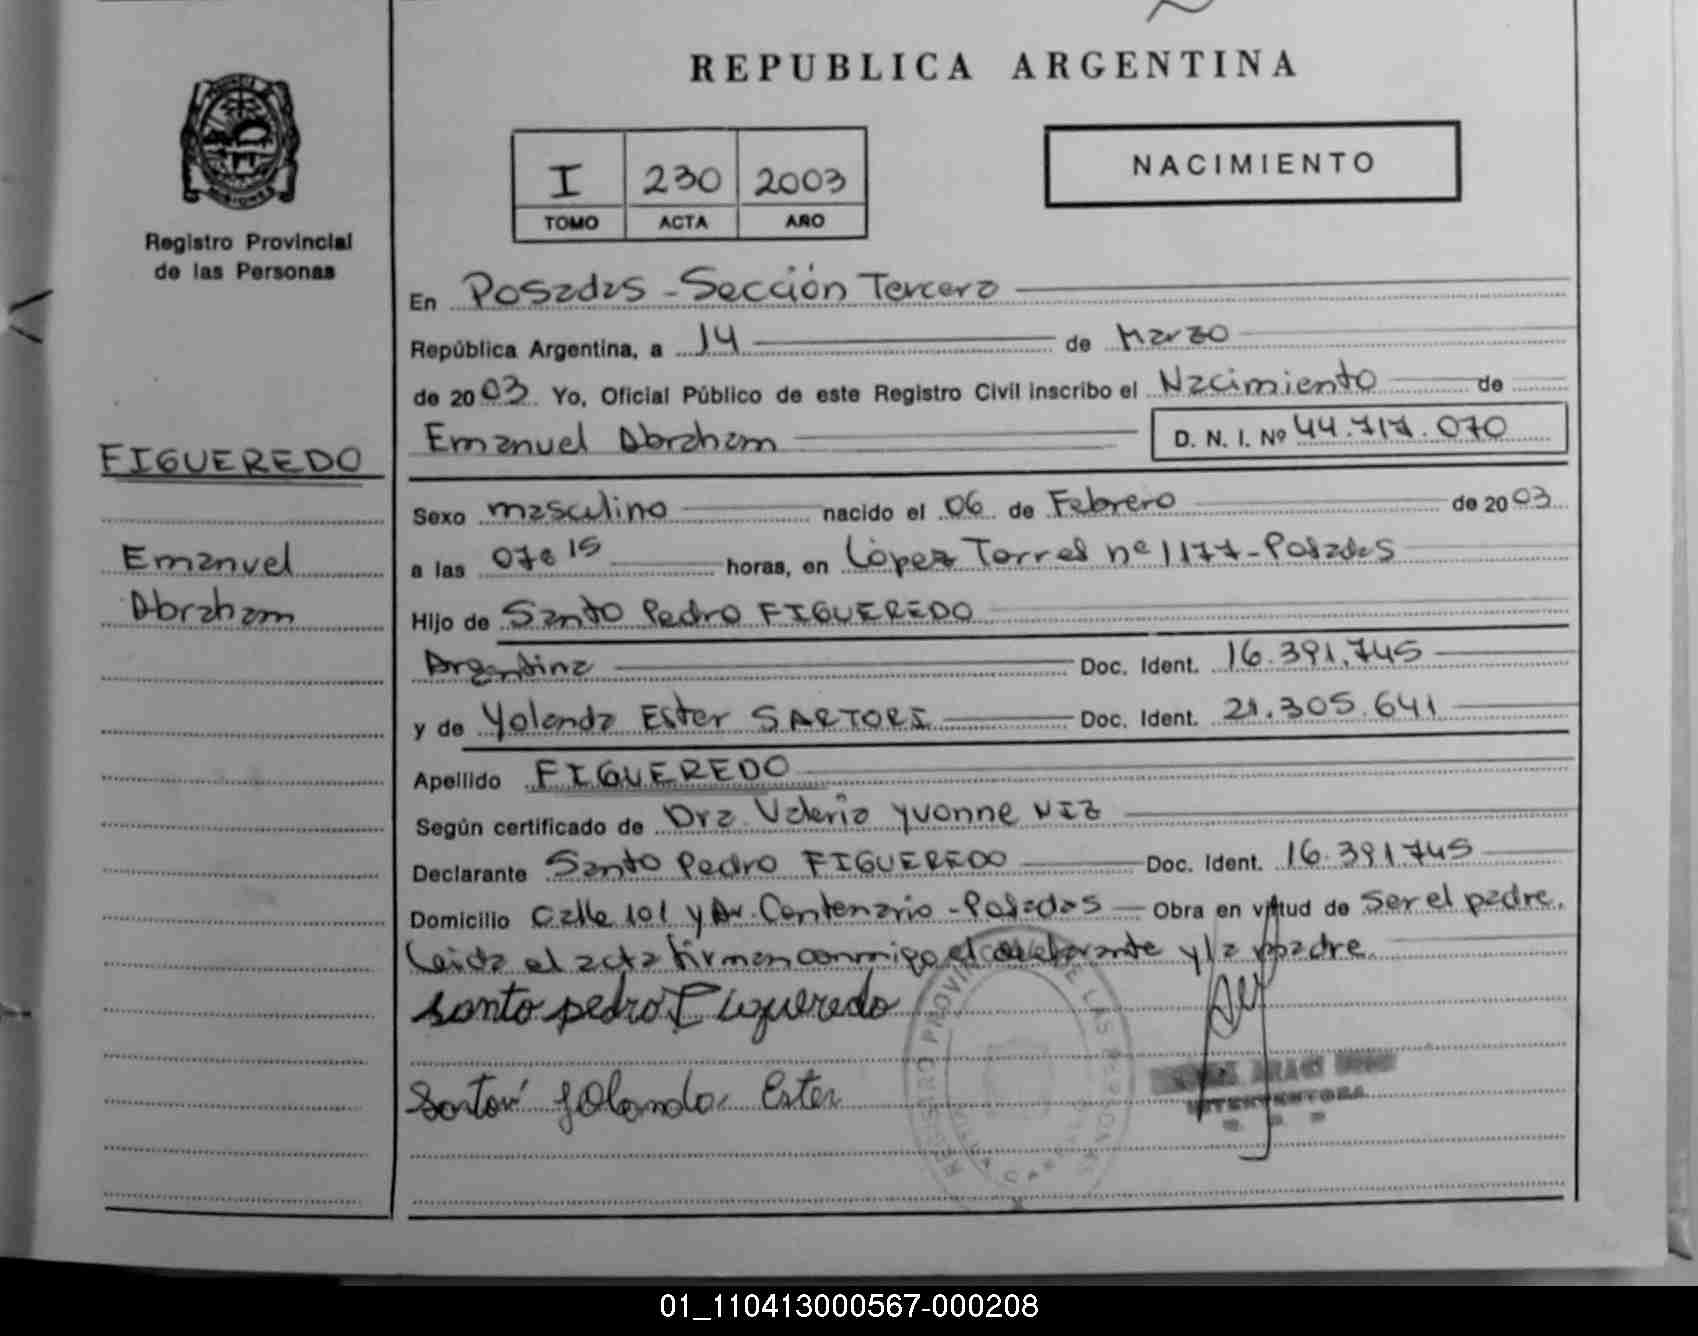 REPUBLICA ARGENTINA
MISIONES
Registro Provincial
de las Personas
I 230 2003
TOMO ACTA AÑO
NACIMIENTO
En Posadas - Sección Tercera
República Argentina, a 14 de Marzo
de 2003 Yo, Oficial Público de este Registro Civil inscribo el Nacimiento de
Emanuel Abraham D. N. I. Nº 44.717.070
FIGUEREDO
Emanuel
Abraham
Sexo masculino nacido el 06 de Febrero de 2003
a las 07 15 horas, en López Torres nº 1177-Posadas
Hijo de Santo Pedro FIGUEREDO
Argentina Doc. Ident. 16.391.745
y de Yolanda Ester SARTORI Doc. Ident. 21.305.641
Apellido FIGUEREDO
Según certificado de Dra. Valeria Yvonne
Declarante Santo Pedro FIGUEREDO Doc. Ident. 16.391.745
Domicilio Calle 101 y Av. Centenario - Posadas Obra en virtud de Ser el padre.
Leída el acta firman conmigo el declarante y la madre.
santo pedro Figueredo
Sartori Yolanda Ester
REGISTRO PROVINCIAL DE LAS PERSONAS
INTERVENTORA
01_110413000567-000208